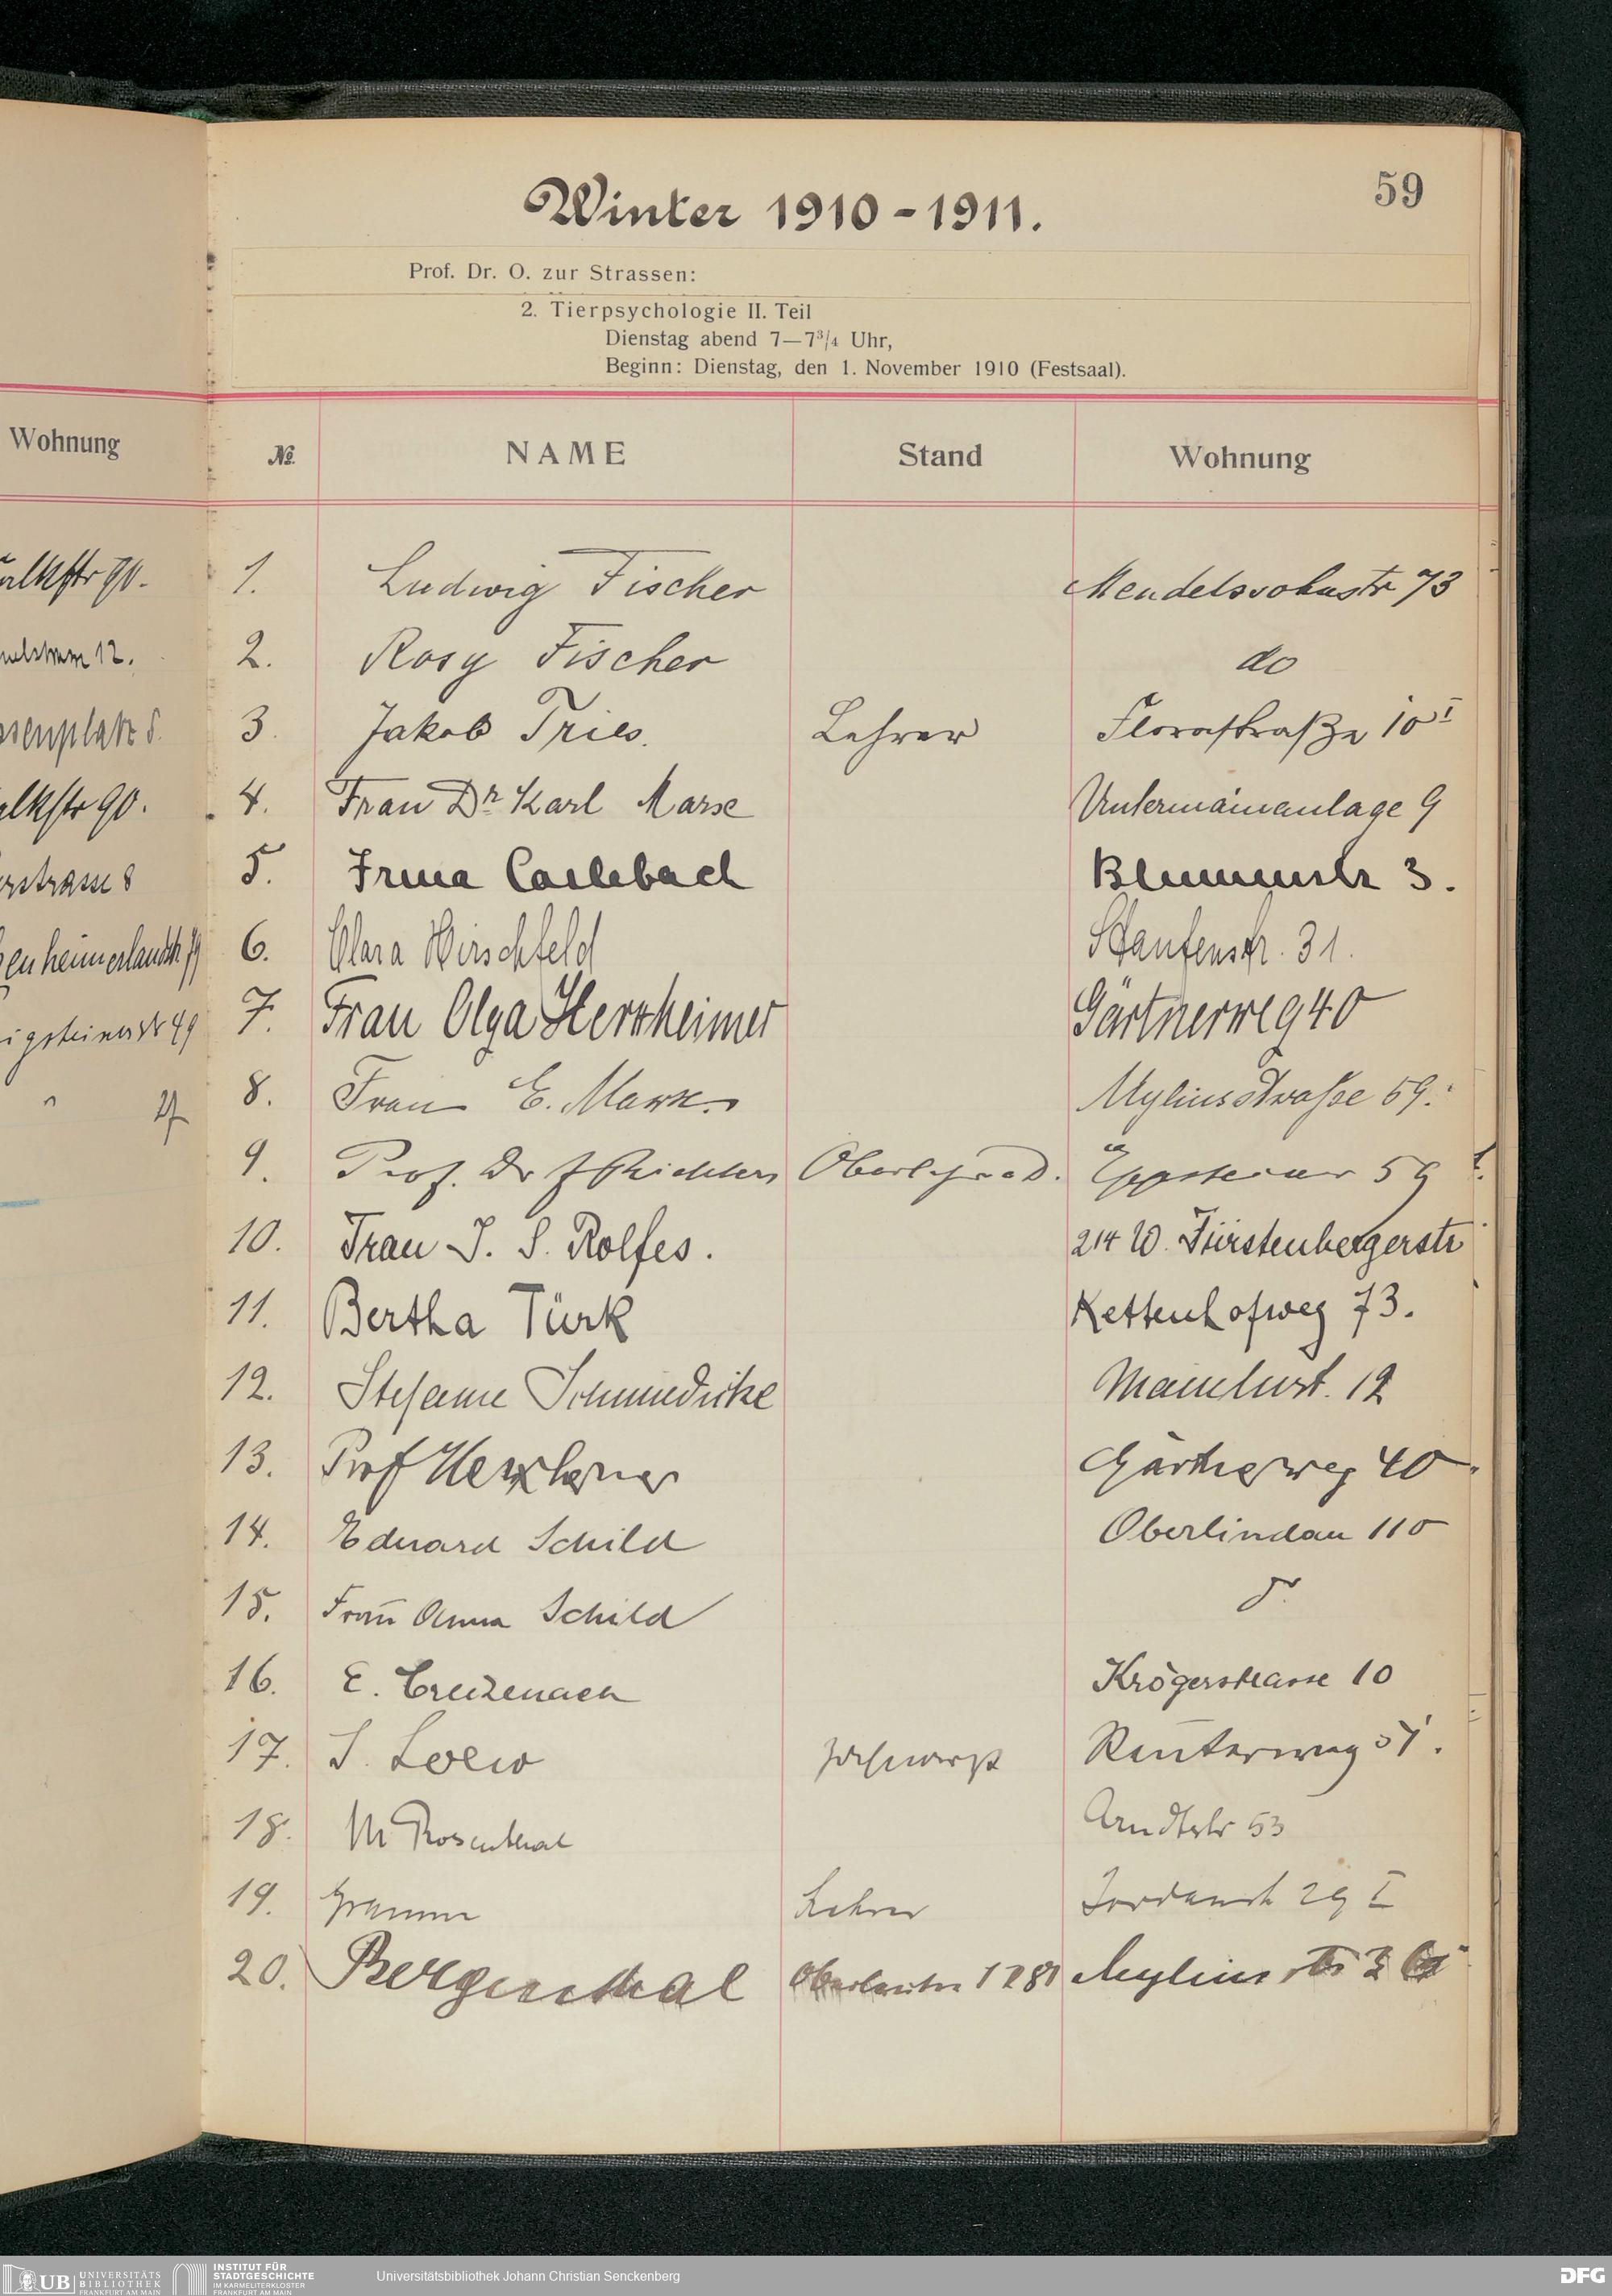 59
Winter 1910-1911.
Prof. Dr. O. zur Strassen:
2. Tierpsychologie II. Teil
Dienstag abend 7—7³/₄ Uhr,
Beginn: Dienstag, den 1. November 1910 (Festsaal).
Wohnung
№ NAME Stand Wohnung
1. Ludwig Fischer Mendelssohnstr 73
2. Rosy Fischer do
3. Jakob Tries. Lehrer Florastraße 10 I
4. Frau Dr Karl Marx Untermainanlage 9
5. Irma Carlebach Blumenstr 3.
6. Clara Hirschfeld Staufenstr. 31.
7. Frau Olga Herxheimer Gärtnerweg 40
8. Frau E. Marx. Myliusstraße 59.
9. Prof. Dr F Richters Eppsteiner 59
10. Frau J. S. Rolfes. 214 W. Fürstenbergerstr
11. Bertha Türk Kettenhofweg 73.
12. Stefanie Schmiedicke Mainlust. 12
13. Prof Herxheimer Gärtnerweg 40
14. Eduard Schild Oberlindau 110
15. Frau Anna Schild
16. E. Creizenach Krögerstrasse 10
17. S. Loew Zahnarzt Reuterweg 51.
18. M Rosenthal Arndtstr 53
19. Gramm Lehrer Jordanstr 29 I
20. Bergenthal Myliusstr
UB UNIVERSITÄTS
BIBLIOTHEK
FRANKFURT AM MAIN
INSTITUT FÜR
STADTGESCHICHTE
IM KARMELITERKLOSTER
FRANKFURT AM MAIN
Universitätsbibliothek Johann Christian Senckenberg
DFG